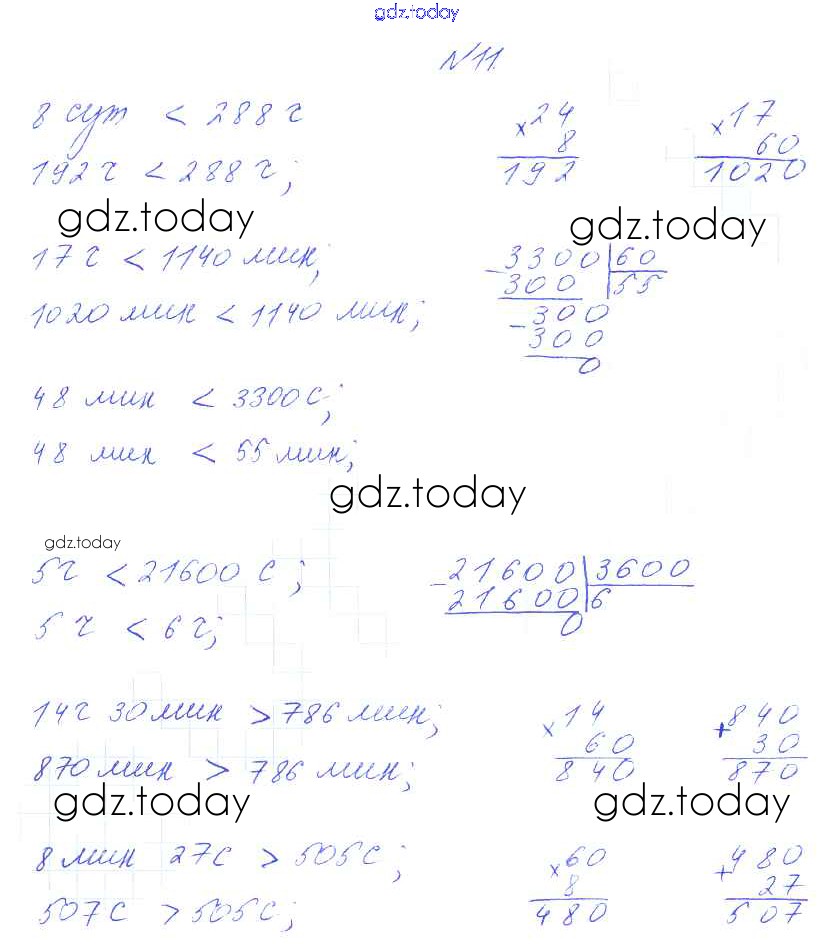 gdz.today
№11.
8 сут < 288 ч
192 ч < 288 ч;
× 24
8
192
× 17
60
1020
gdz.today
gdz.today
17 ч < 1140 мин;
1020 мин < 1140 мин;
− 3300 | 60
300 | 55
− 300
300
0
48 мин < 3300 с;
48 мин < 55 мин;
gdz.today
gdz.today
5 ч < 21600 с;
5 ч < 6 ч;
− 21600 | 3600
21600 | 6
0
14 ч 30 мин > 786 мин;
870 мин > 786 мин;
× 14
60
840
+ 840
30
870
gdz.today
gdz.today
8 мин 27 с > 505 с;
507 с > 505 с;
× 60
8
480
+ 480
27
507